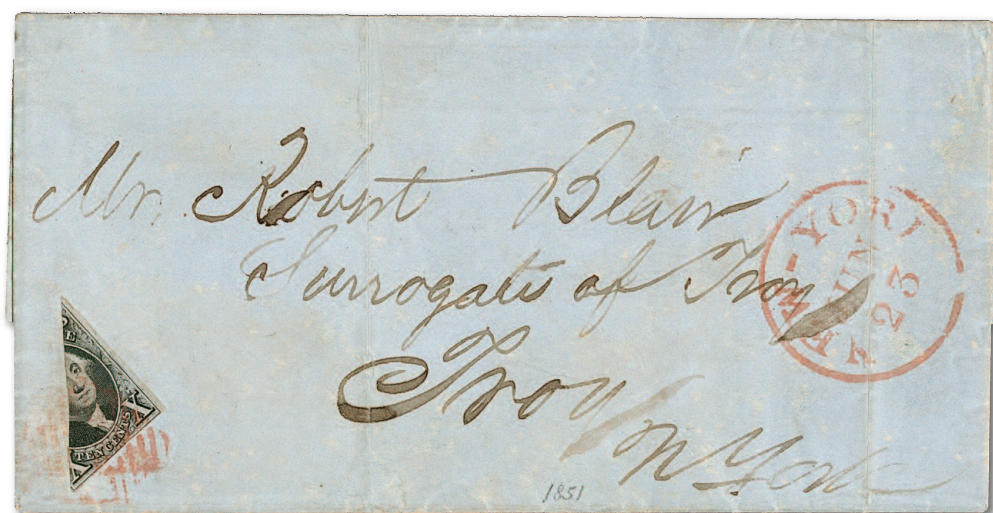 Mr. Robert Blair
Surrogate of Troy
Troy
N York
NEW-YORK
JUN
23
X
TEN CENTS
X
1851